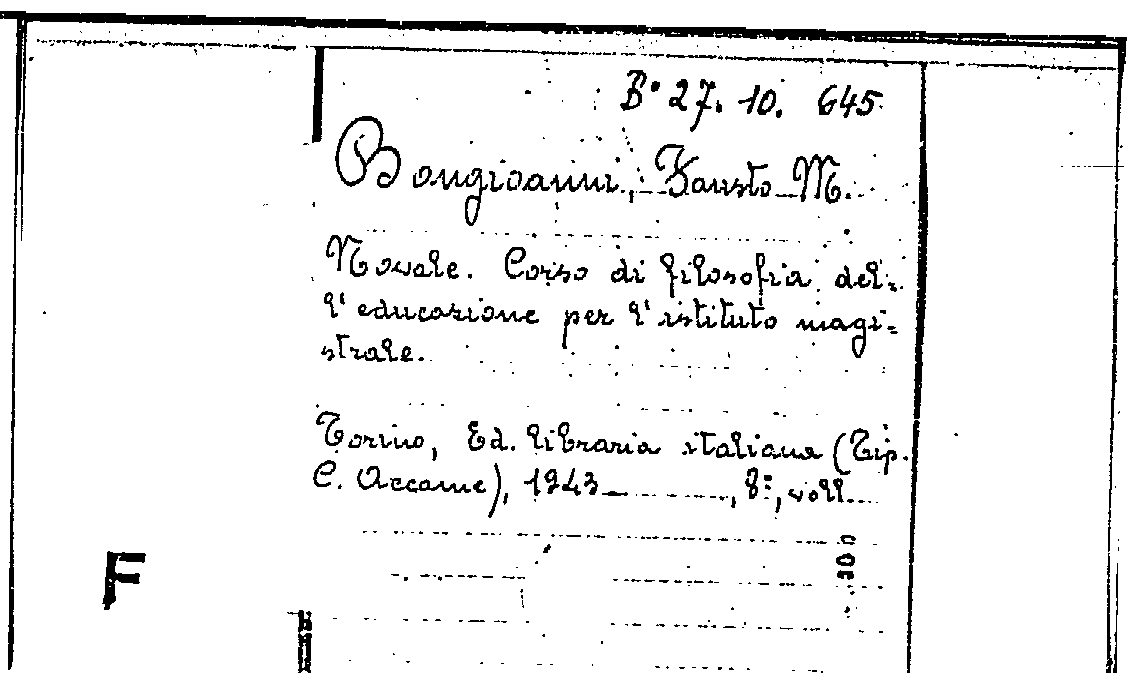 B° 27. 10. 645
Bongioanni, Fausto M.
Novale. Corso di filosofia del=
l'educazione per l'istituto magi=
strale.
Torino, Ed. libraria italiana (Tip.
C. Accame), 1943 , 8°, voll.
F